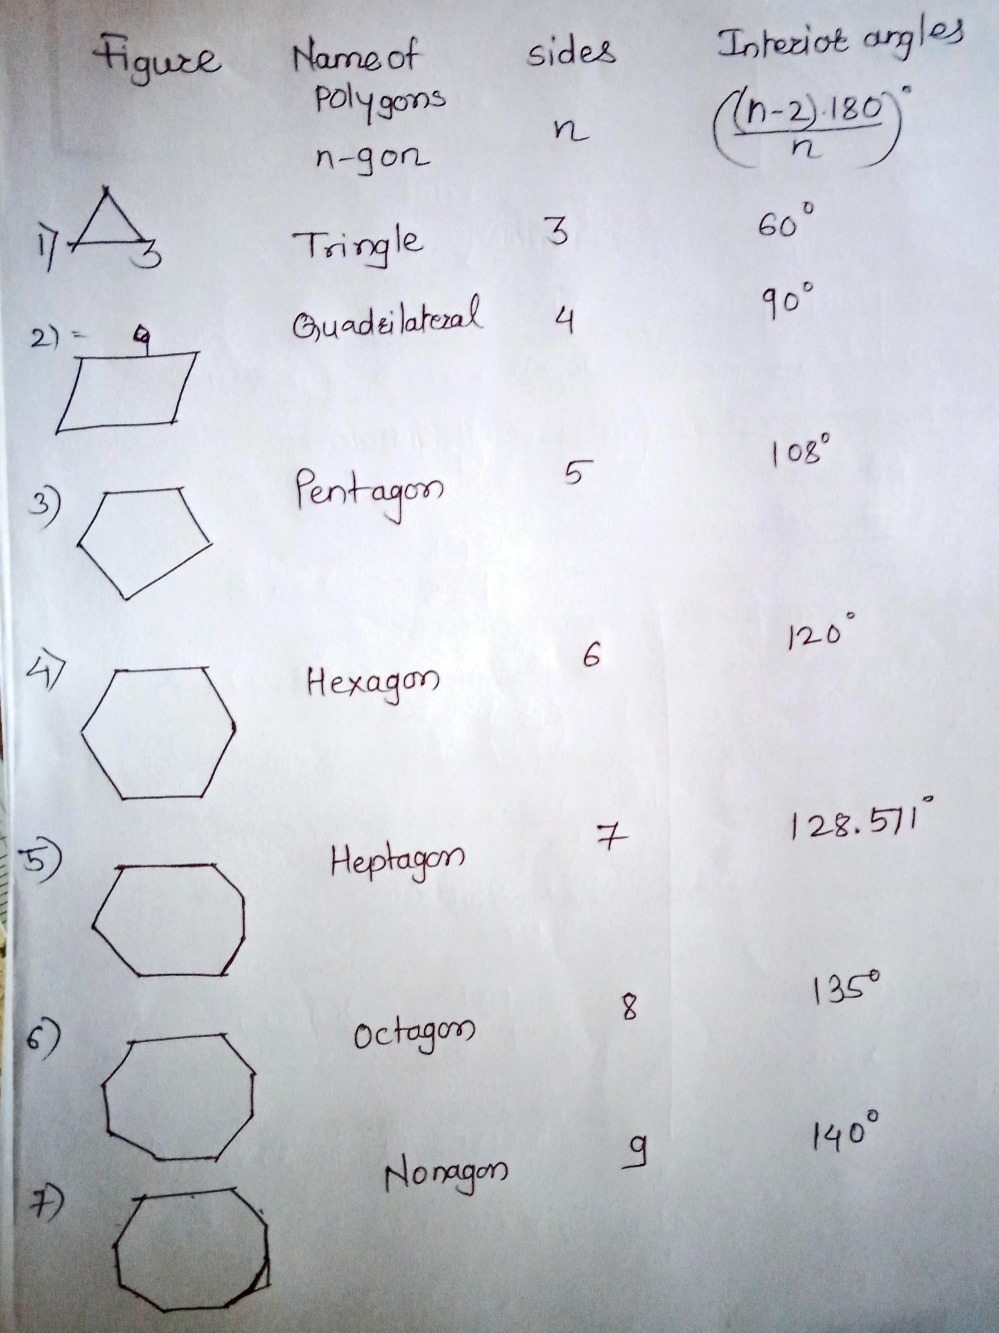 Figure Name of sides Interior angles
Polygons
n-gon n ((n-2).180/n)°
1) 3 Tringle 3 60°
2) = 4 Quadrilateral 4 90°
3) Pentagon 5 108°
4) Hexagon 6 120°
5) Heptagon 7 128.571°
6) Octagon 8 135°
7) Nonagon 9 140°